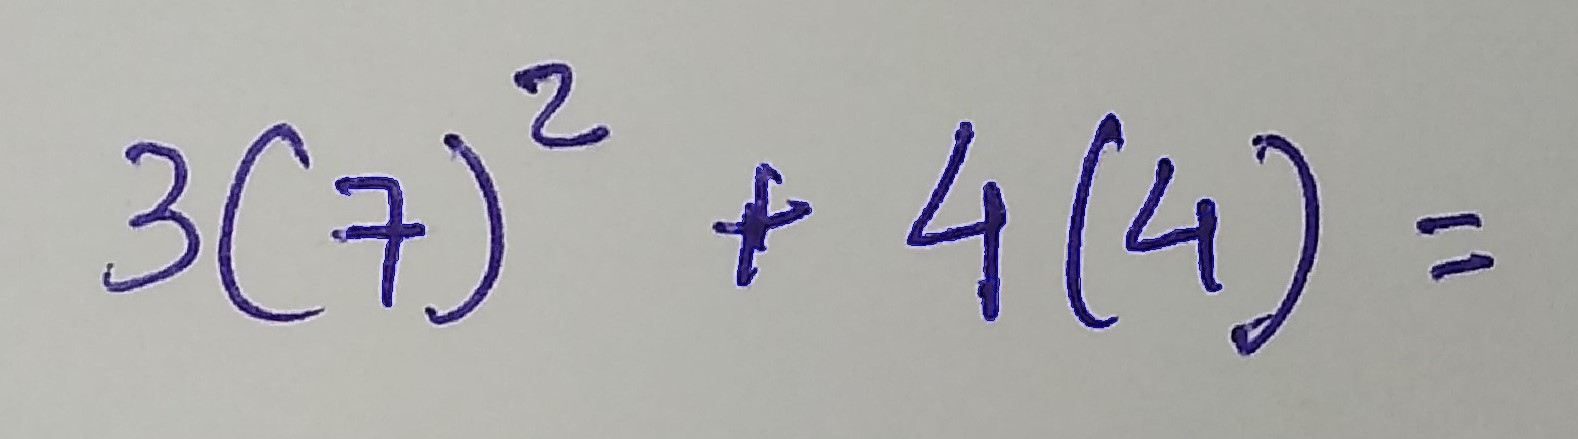 3(7)² + 4(4) =